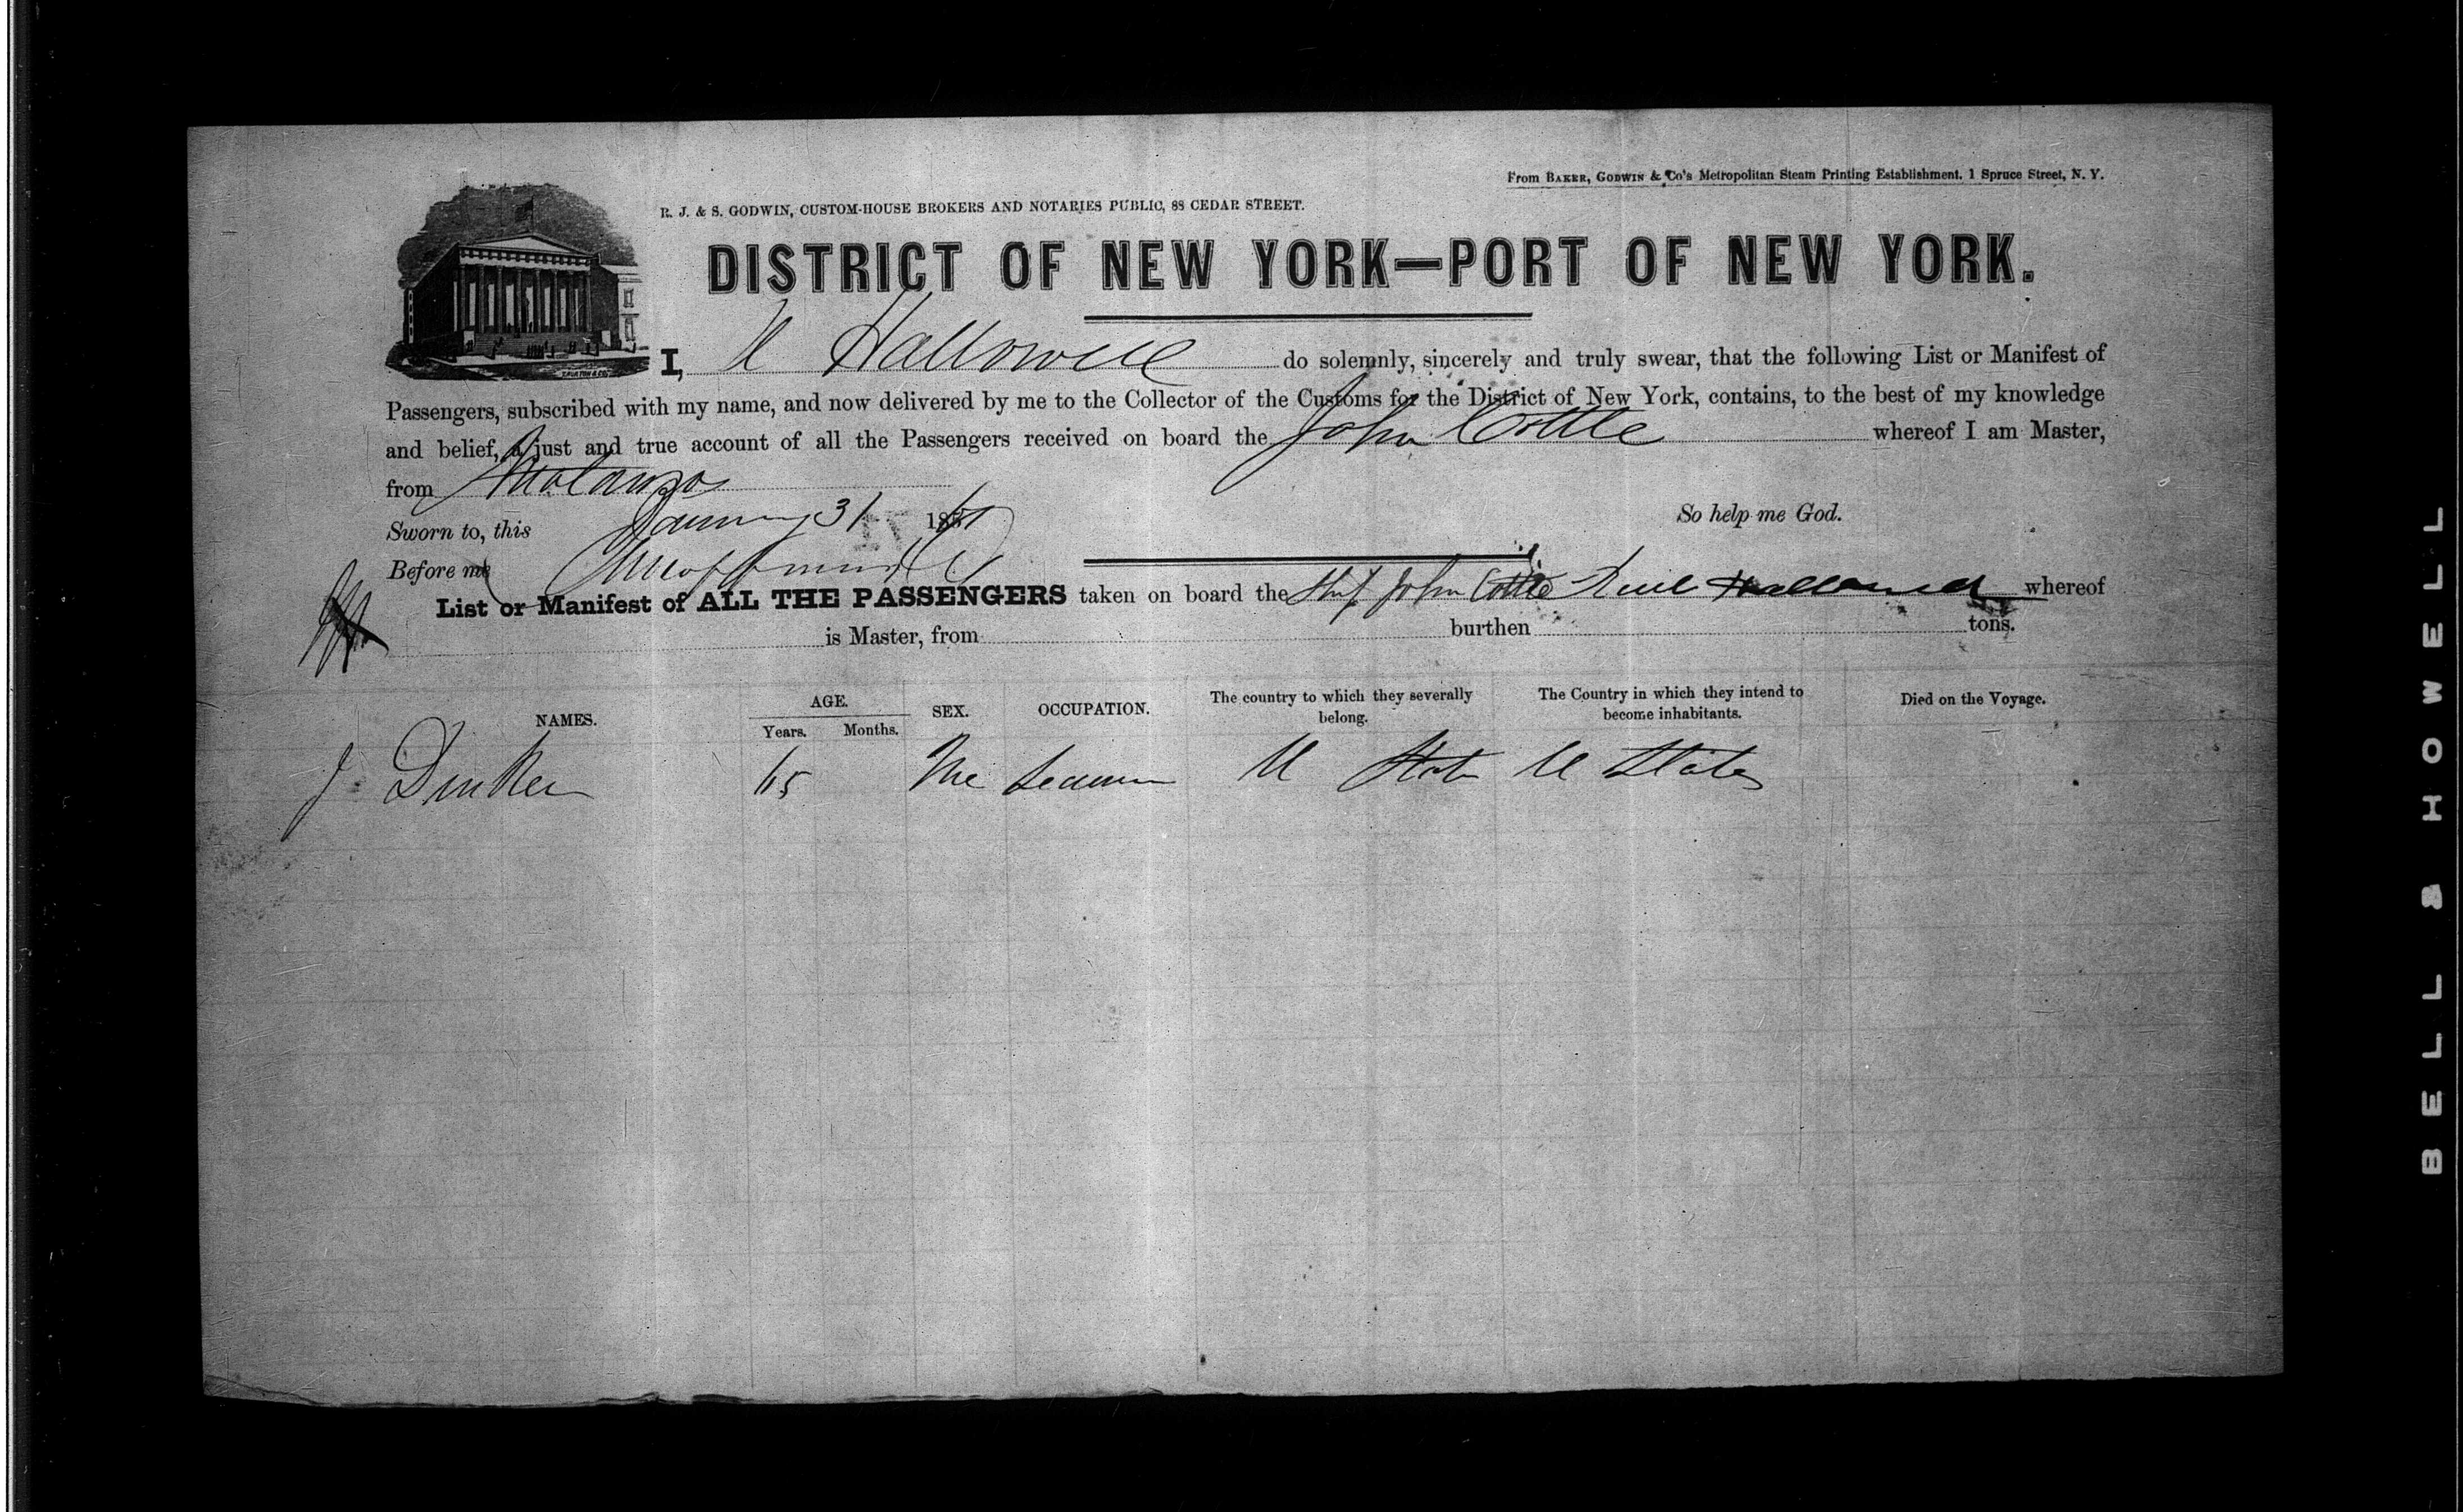 From BAKER, GODWIN & Co's Metropolitan Steam Printing Establishment, 1 Spruce Street, N. Y.
R. J. & S. GODWIN, CUSTOM-HOUSE BROKERS AND NOTARIES PUBLIC, 88 CEDAR STREET.
DISTRICT OF NEW YORK—PORT OF NEW YORK.
I, Hallowell do solemnly, sincerely and truly swear, that the following List or Manifest of
Passengers, subscribed with my name, and now delivered by me to the Collector of the Customs for the District of New York, contains, to the best of my knowledge
and belief, a just and true account of all the Passengers received on board the John Cottle whereof I am Master,
from Matanzas
Sworn to, this January 31 So help me God.
Before me
List or Manifest of ALL THE PASSENGERS taken on board the John Cottle whereof
is Master, from burthen tons.
NAMES. AGE. Years. Months. SEX. OCCUPATION. The country to which they severally belong. The Country in which they intend to become inhabitants. Died on the Voyage.
J Seaman U States U States
BELL & HOWELL